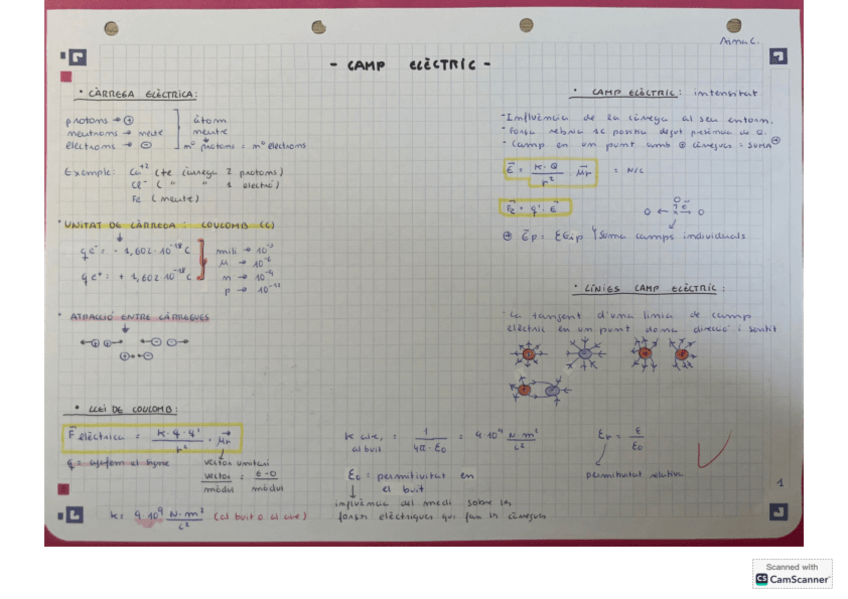 Aima C.
- CAMP ELÈCTRIC -
• CÀRREGA ELÈCTRICA:
protons → ⊕
neutrons → neutre
electrons → ⊖
àtom
neutre
nº protons = nº electrons
Exemple: Ca⁺² (té càrrega 2 protons)
Cl⁻ ( " " 1 electró)
Fe (neutre)
• UNITAT DE CÀRREGA: COULOMB (C)
qe⁻: - 1,602·10⁻¹⁹ C
qe⁺: + 1,602·10⁻¹⁹ C
mili → 10⁻³
μ → 10⁻⁶
n → 10⁻⁹
p → 10⁻¹²
• ATRACCIÓ ENTRE CÀRREGUES
• LLEI DE COULOMB:
F elèctrica = K·q·q' / r² · μr
q = agafem el signe
vector unitari
vector / mòdul = / mòdul
K = 9·10⁹ N·m²/C² (al buit o al aire)
K aire, al buit = 1 / 4π·ε₀ = 9·10⁹ N·m²/C²
ε₀ = permitivitat en
el buit
influència del medi sobre les
forces elèctriques que fan les càrregues
εr = ε / ε₀
permitivitat relativa
• CAMP ELÈCTRIC: intensitat
- Influència de la càrrega al seu entorn.
- Força rebria 1C positiu degut presència de Q.
- Camp en un punt amb ⊕ càrregues = SUMA
E = K·Q / r² · μr = N/C
Fe = q'·E
Soma camps individuals
• LÍNIES CAMP ELÈCTRIC:
- La tangent d'una línia de camp
elèctric en un punt dona direcció i sentit
1
Scanned with
CS CamScanner